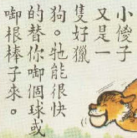 小傻子
又是一
隻好獵
狗。牠能很快
的替你啣個球或
啣根棒子來。